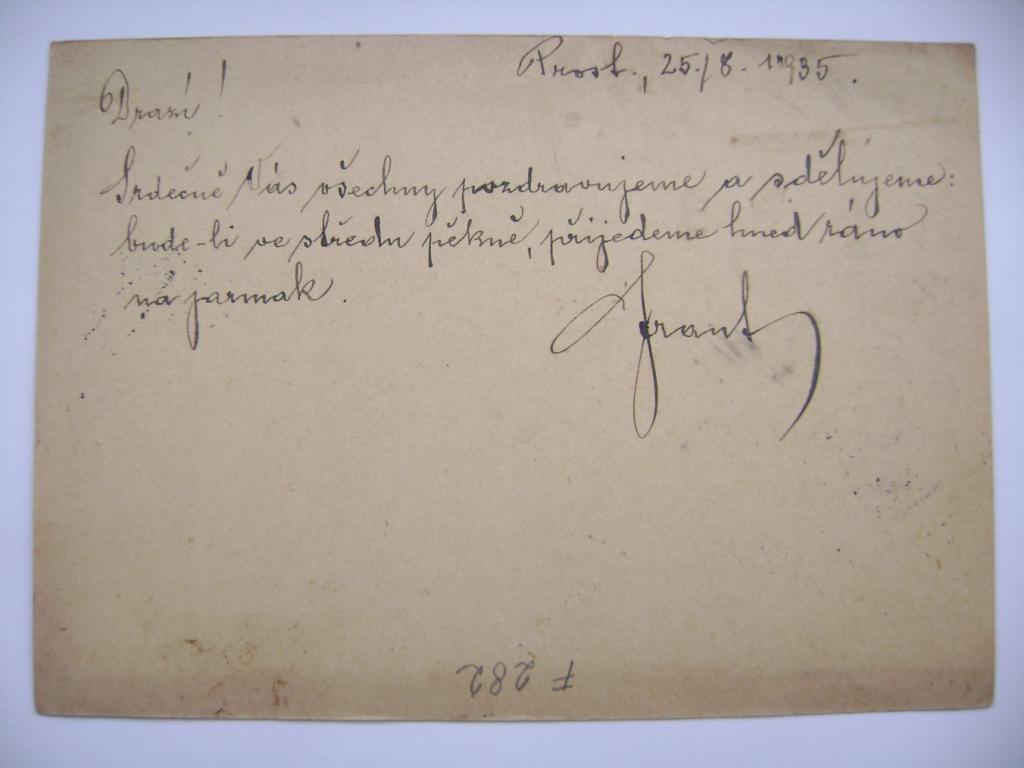 Prost., 25./8. 1935.
Drazí!
Srdečně Vás všechny pozdravujeme a sdělujeme:
bude-li ve středu pěkně, přijedeme hned ráno
na jarmak.
Frant
F 282